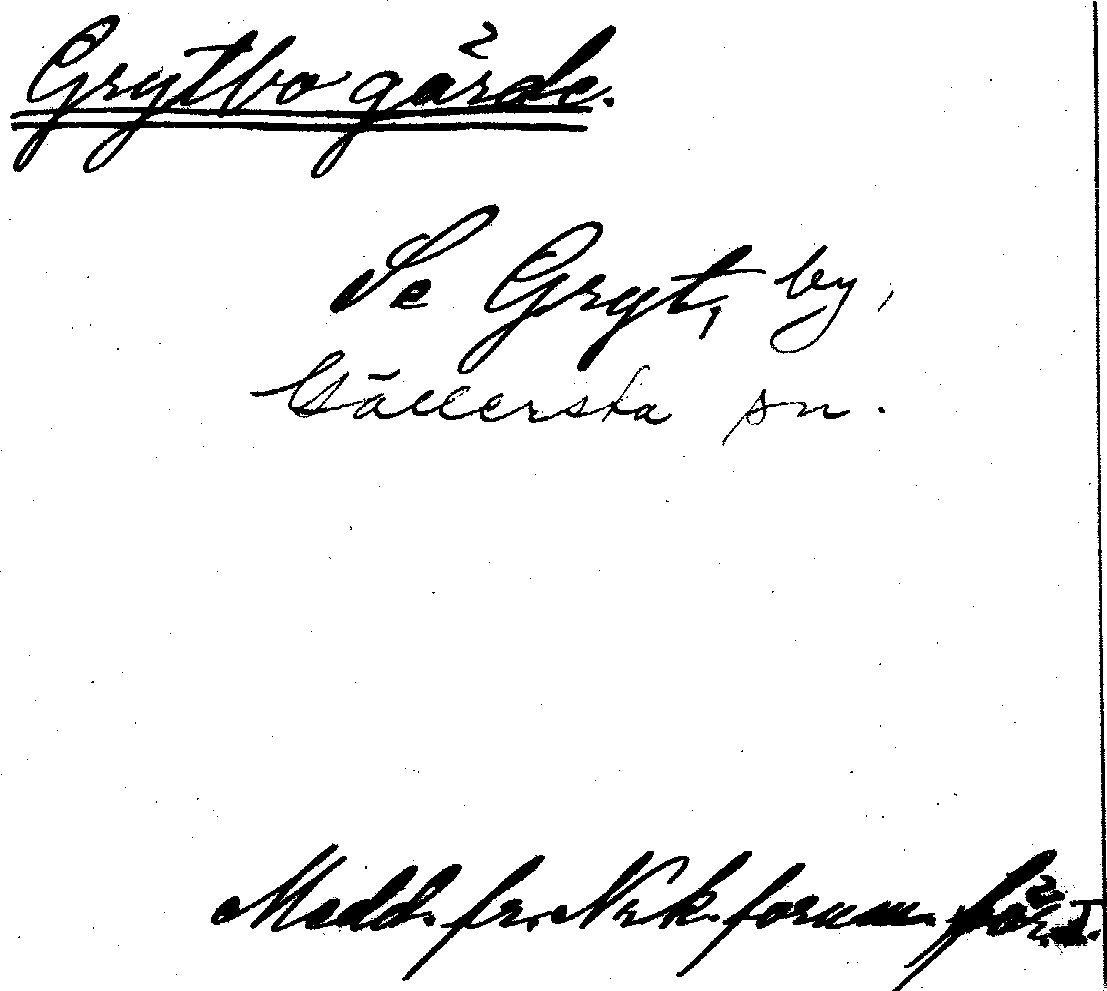 Grytbo gärde.
Se Gryt, by,
Gällersta sn.
Medd. fr. Nrk. fornm. för. I.